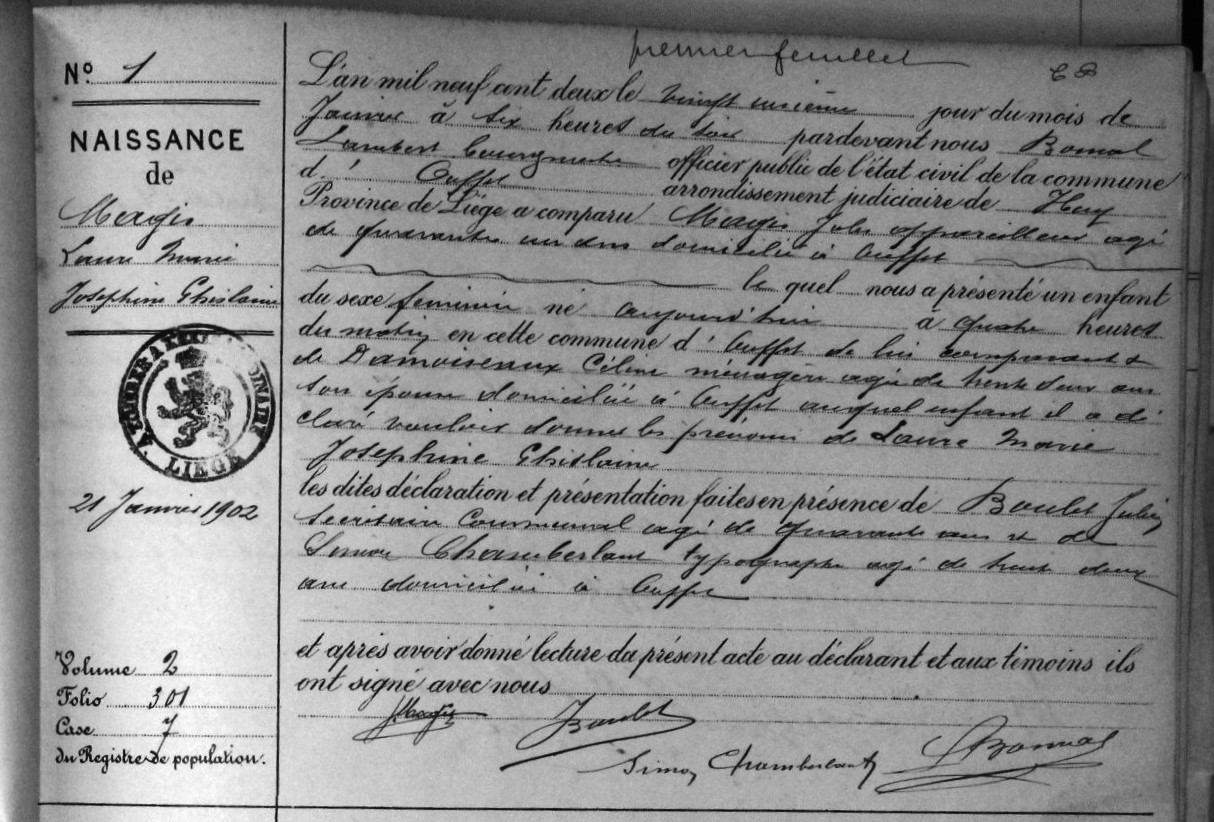 premier feuillet
N° 1
NAISSANCE
de
Magis
Laure Marie
Joséphine Ghislaine
21 Janvier 1902
LIÉGE
Volume 2
Folio 301
Case 7
du Registre de population.
L'an mil neuf cent deux le vingt unième jour du mois de
Janvier à six heures du soir pardevant nous Bomal
Lambert bourgmestre officier public de l'état civil de la commune
d' Ouffet arrondissement judiciaire de Huy
Province de Liége a comparu Magis Jules appareilleur agé
de quarante un ans domicilié à Ouffet
le quel nous a présenté un enfant
du sexe feminin né aujourd'hui à quatre heures
du matin en cette commune d' Ouffet de lui comparant &
de Damoiseaux Céline ménagère agée de trente deux ans
son épouse domiciliée à Ouffet auquel enfant il a dé
claré vouloir donner les prénoms de Laure Marie
Joséphine Ghislaine
les dites déclaration et présentation faites en présence de Boulet Julien
secrétaire Communal agé de quarante ans et de
Simon Chamberlant typographe agé de trente deux
ans domiciliés à Ouffet
et après avoir donné lecture du présent acte au déclarant et aux témoins ils
ont signé avec nous
J Magis
J Boulet
Simon Chamberlant
L Bomal